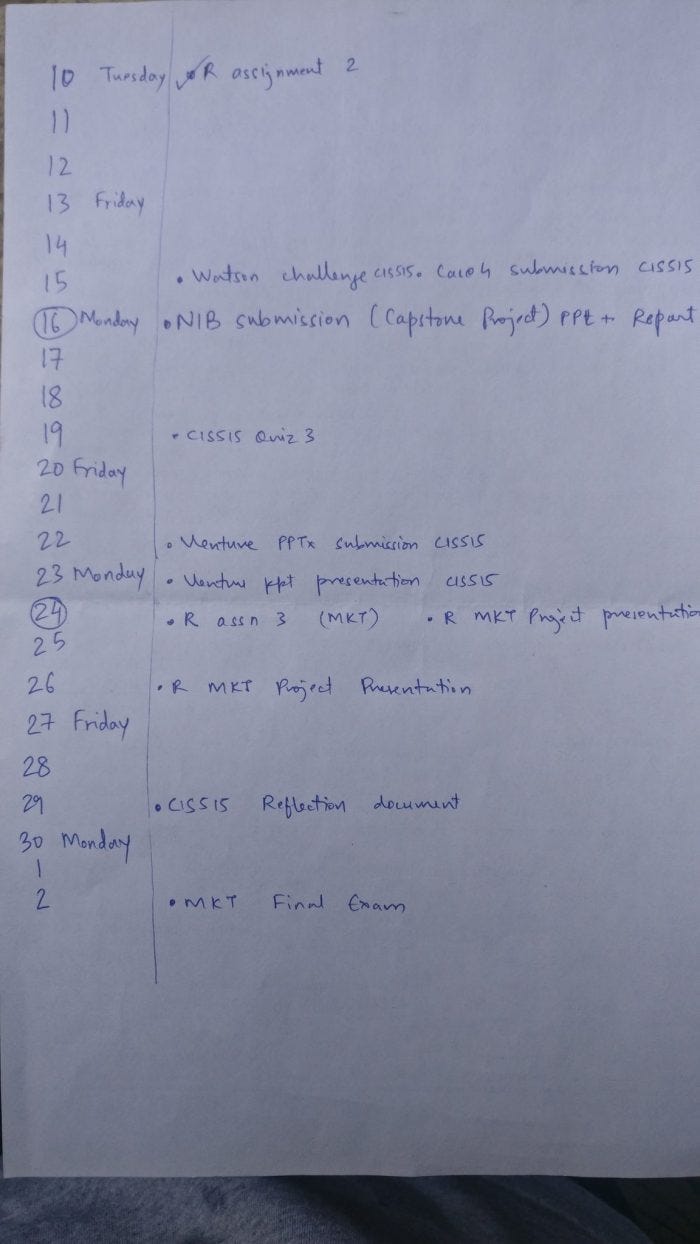 10 Tuesday ✓• R assignment 2
11
12
13 Friday
14
15 • Watson challenge CISS15. Case 4 submission CISS15
16 Monday • NIB submission (Capstone Project) PPt + Report
17
18
19 • CISS15 Quiz 3
20 Friday
21
22 • Venture PPTx submission CISS15
23 Monday • Venture ppt presentation CISS15
24 • R assn 3 (MKT) • R MKT Project presentatio
25
26 • R MKT Project Presentation
27 Friday
28
29 • CISS15 Reflection document
30 Monday
1
2 • MKT Final Exam